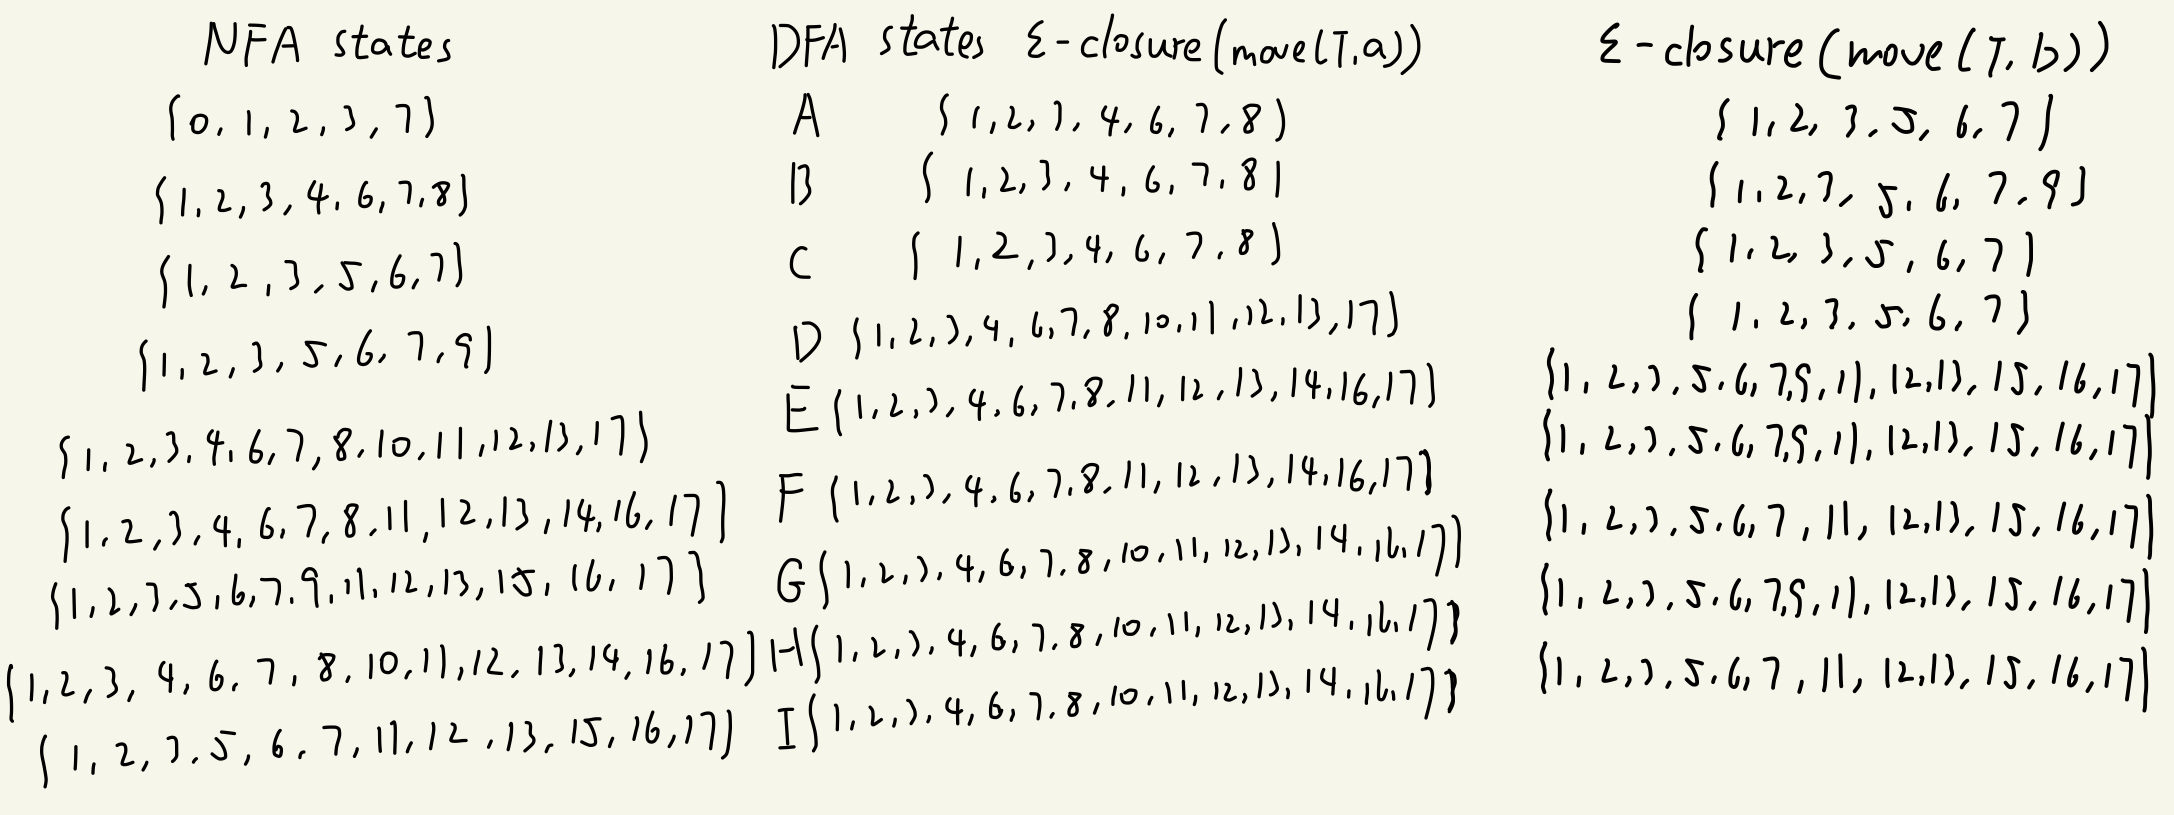 NFA states DFA states ε-closure(move(T,a)) ε-closure(move(T,b))
{0,1,2,3,7} A {1,2,3,4,6,7,8} {1,2,3,5,6,7}
{1,2,3,4,6,7,8} B {1,2,3,4,6,7,8} {1,2,3,5,6,7,9}
{1,2,3,5,6,7} C {1,2,3,4,6,7,8} {1,2,3,5,6,7}
{1,2,3,5,6,7,9} D {1,2,3,4,6,7,8,10,11,12,13,17} {1,2,3,5,6,7}
{1,2,3,4,6,7,8,10,11,12,13,17} E {1,2,3,4,6,7,8,11,12,13,14,16,17} {1,2,3,5,6,7,9,11,12,13,15,16,17}
{1,2,3,4,6,7,8,11,12,13,14,16,17} F {1,2,3,4,6,7,8,11,12,13,14,16,17} {1,2,3,5,6,7,9,11,12,13,15,16,17}
{1,2,3,5,6,7,9,11,12,13,15,16,17} G {1,2,3,4,6,7,8,10,11,12,13,14,16,17} {1,2,3,5,6,7,11,12,13,15,16,17}
{1,2,3,4,6,7,8,10,11,12,13,14,16,17} H {1,2,3,4,6,7,8,10,11,12,13,14,16,17} {1,2,3,5,6,7,9,11,12,13,15,16,17}
{1,2,3,5,6,7,11,12,13,15,16,17} I {1,2,3,4,6,7,8,10,11,12,13,14,16,17} {1,2,3,5,6,7,11,12,13,15,16,17}